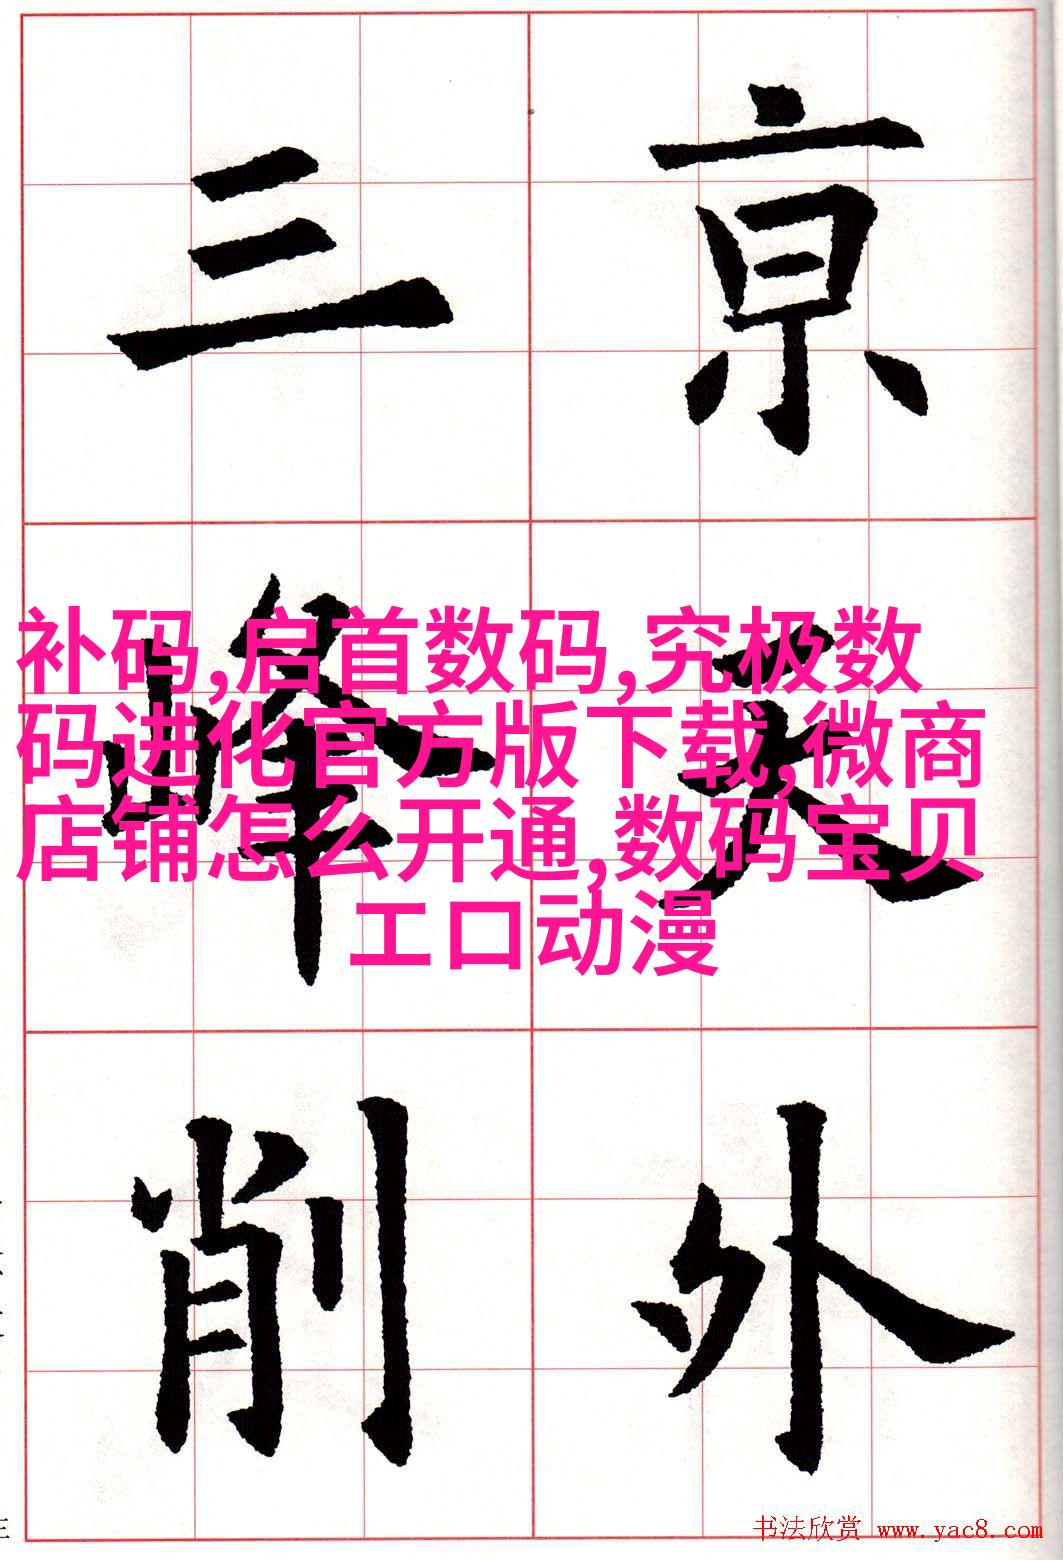 三 京
峰 天
削 外
补码,启首数码,究极数
码进化官方版下载,微商
店铺怎么开通,数码宝贝
工口动漫
书法欣赏 www.yac8.com